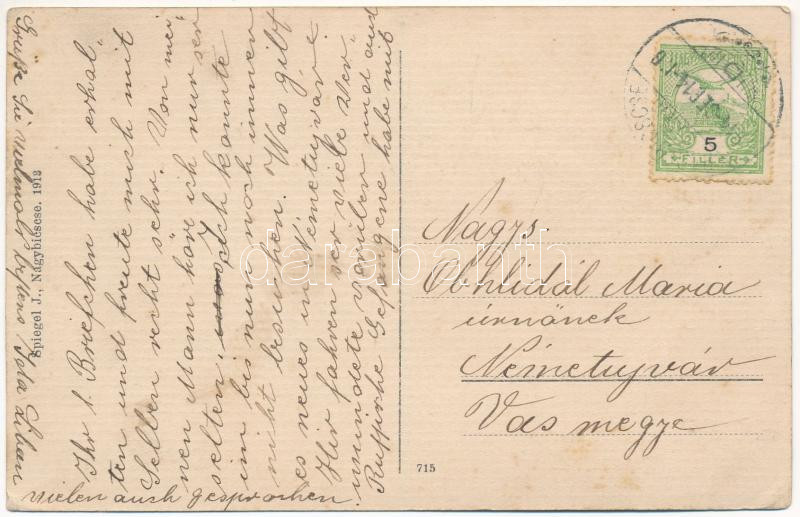 Ihr l. Briefchen habe erhal
ten und freute mich mit
Selben recht sehr. Von mei
nen Mann höre ich nur ser
selten. Ich kannte
im bis nun noch immer
nicht besuchen. Was gibt
es neues in Németujvár?
Hir fahren ser viele Ver
wundete vorüber und auch
Russische Gefangene habe mit
vielen auch gesprochen.
Grüße Sie vielmals bestens
Spiegel J., Nagybicscse. 1913
715
5
FILLÉR
Nagys.
Obhlidál Maria
úrnőnek
Németujvár
Vas megye
darabanth